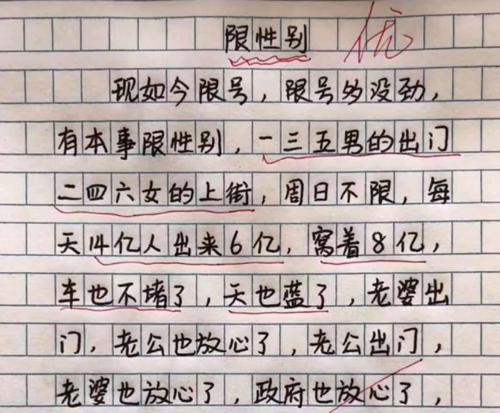 限性别 优
现如今限号，限号多没劲，
有本事限性别，一三五男的出门
二四六女的上街，周日不限，每
天14亿人出来6亿，窝着8亿，
车也不堵了，天也蓝了，老婆出
门，老公也放心了，老公出门，
老婆也放心了，政府也放心了，